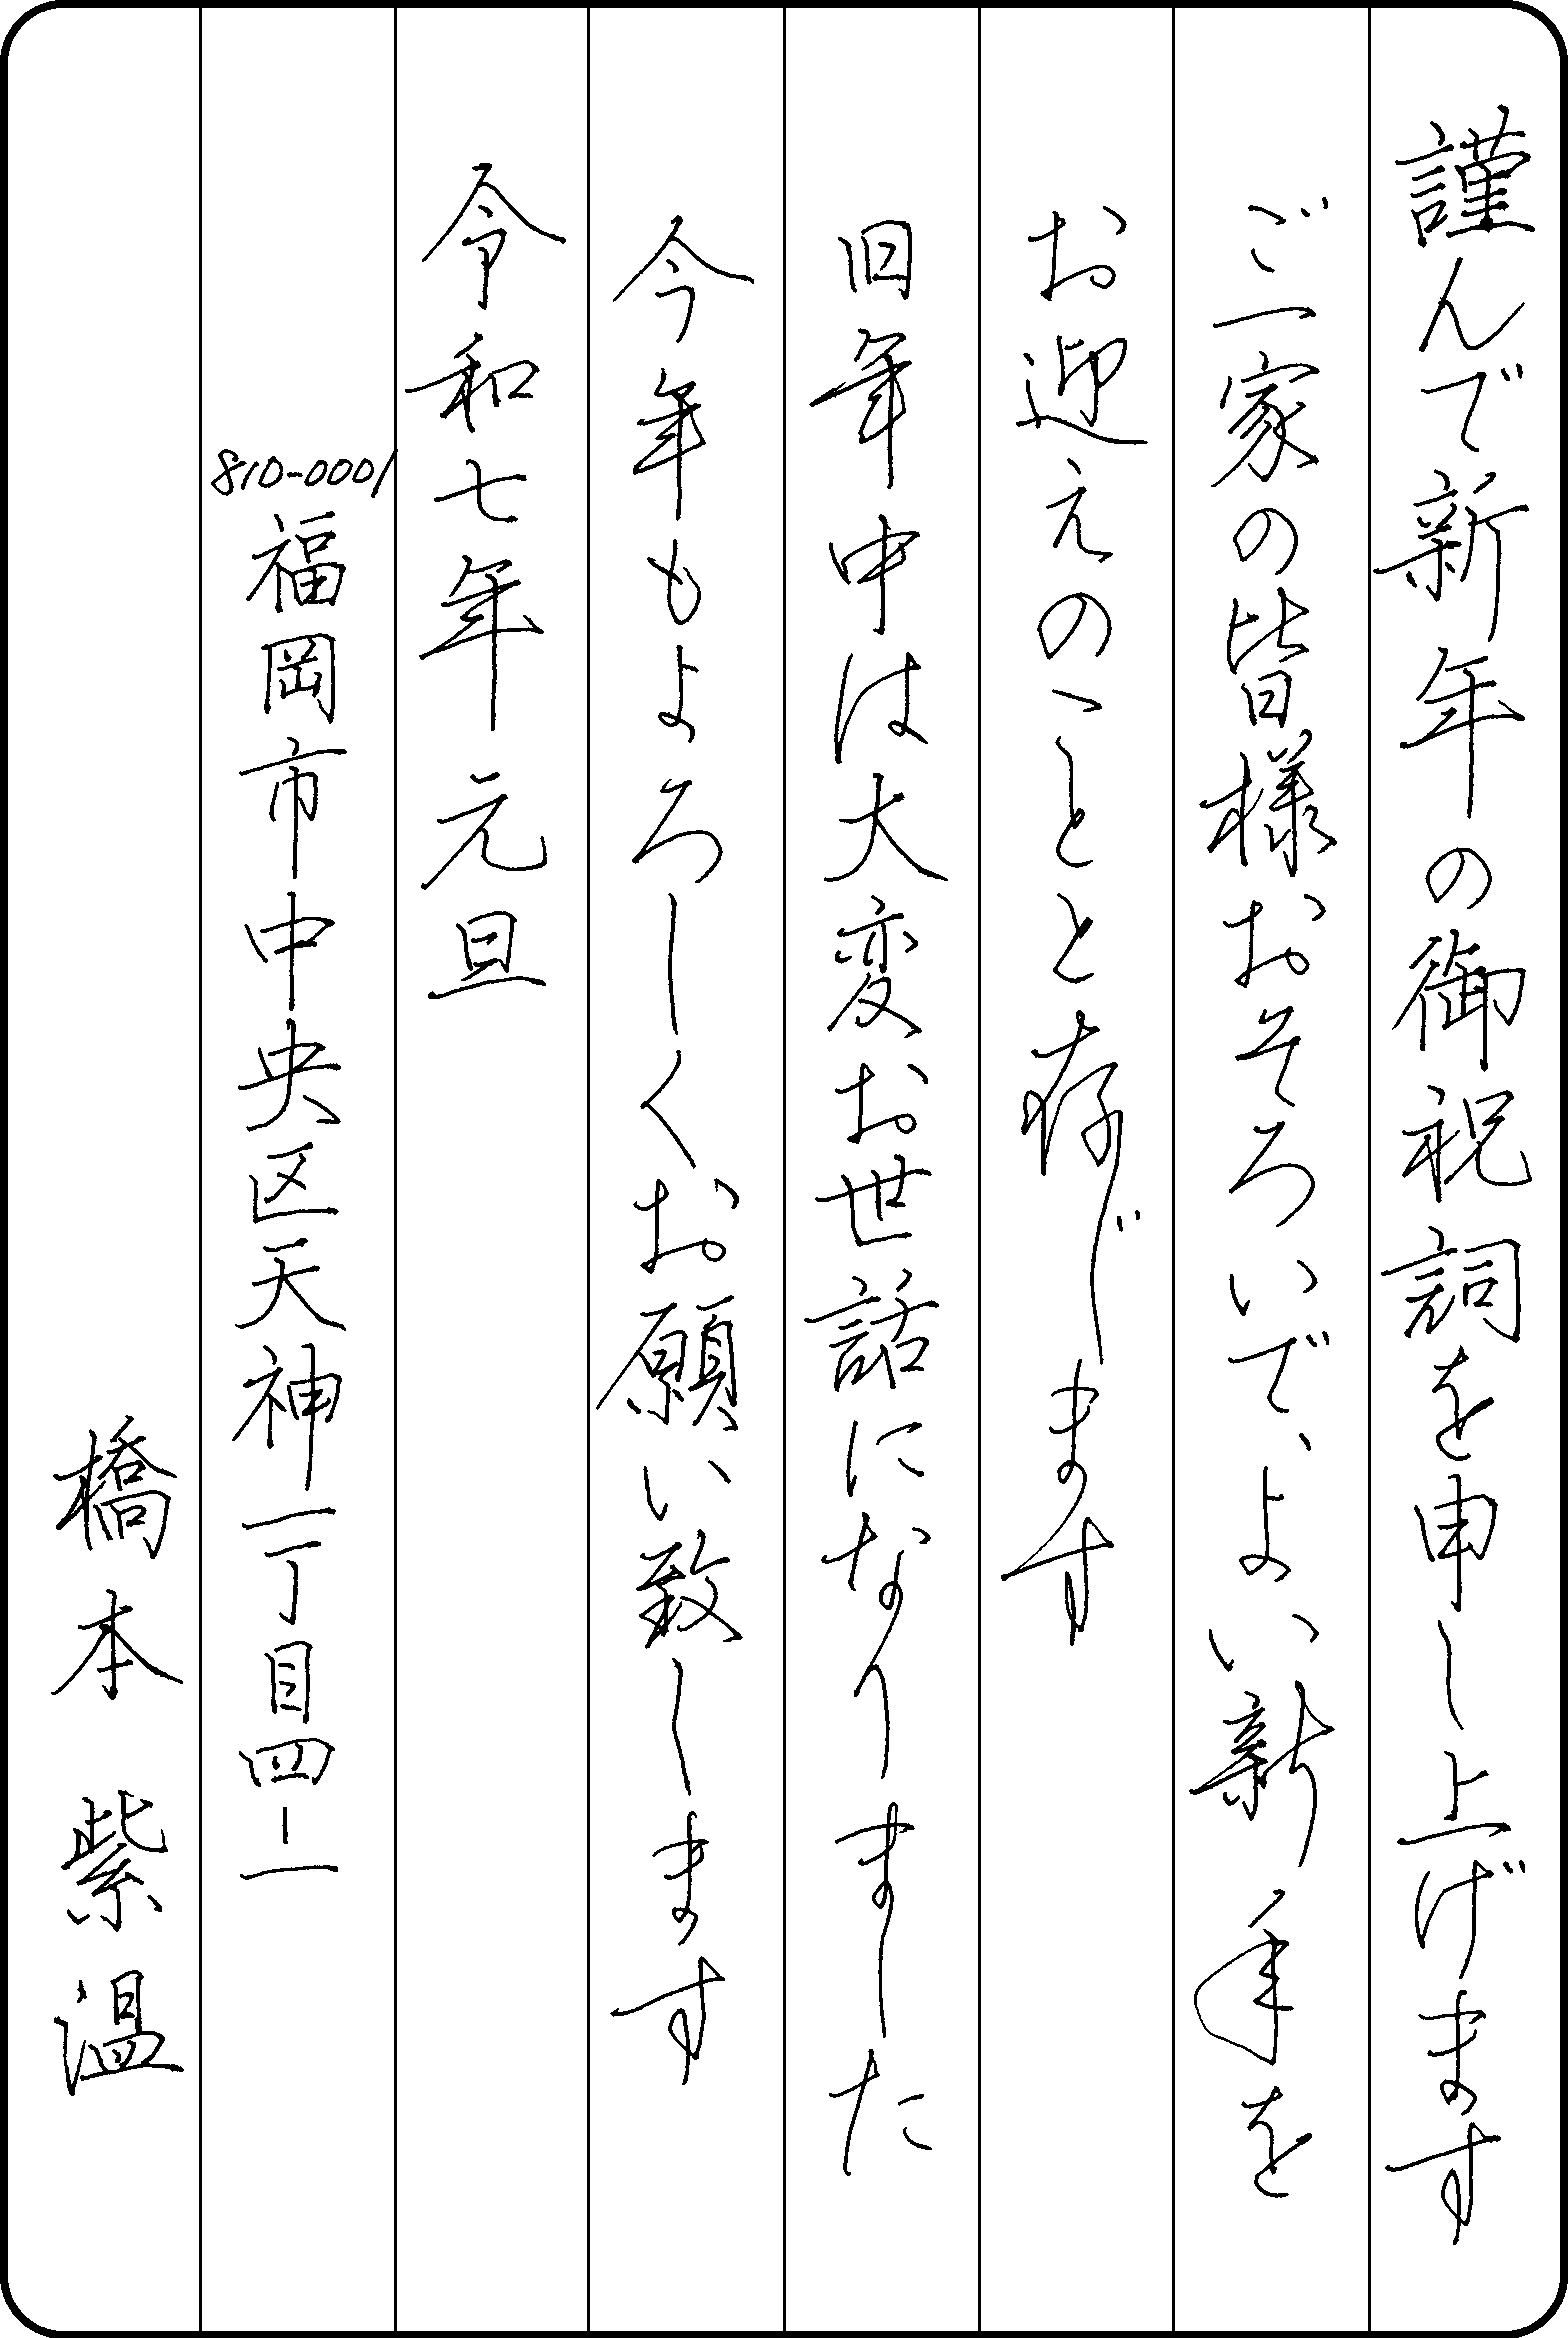 謹んで新年の御祝詞を申し上げます
ご一家の皆様おそろいで、よい新年を
お迎えのことと存じます
旧年中は大変お世話になりました
今年もよろしくお願い致します
令和七年 元旦
810-0001 福岡市中央区天神一丁目四-一
橋本 紫温